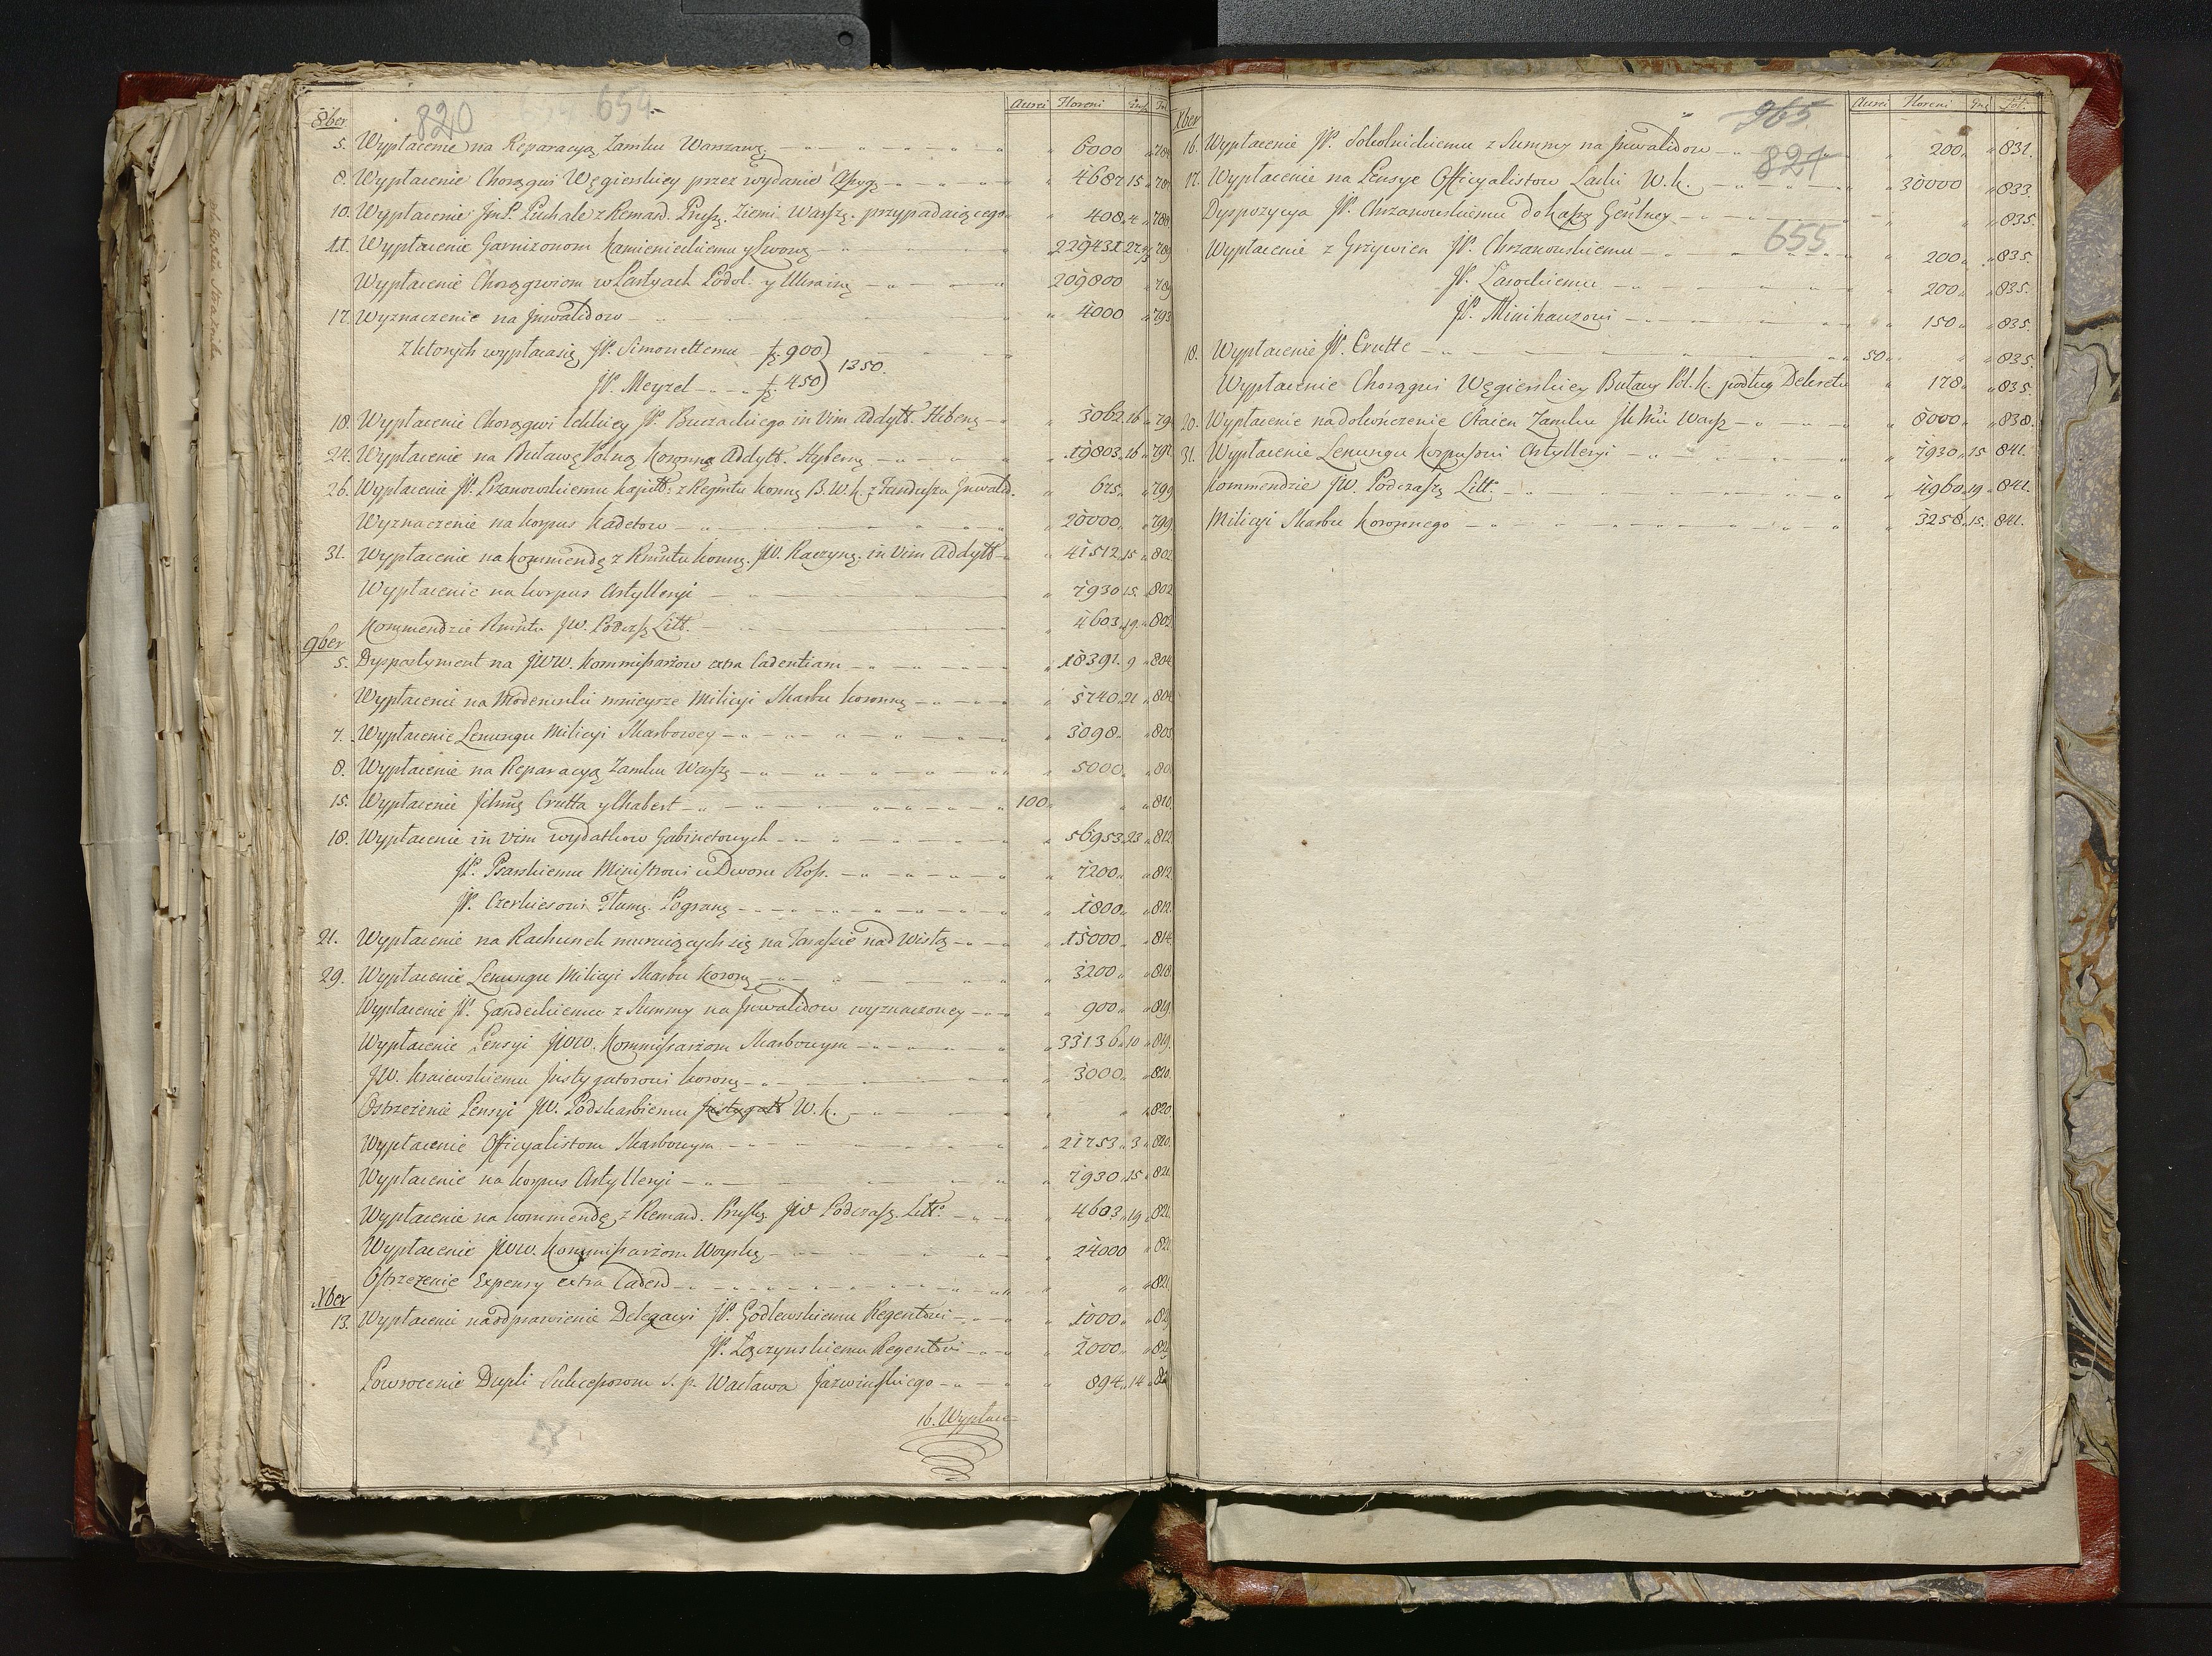 820 654 654
8ber Aurei Floreni Gros. Fol.
5. Wypłacenie na Reparacyą Zamku Warszawſ. 6000 „ 784
8. Wypłacenie Chorągwi Węgierskiey przez wydanie Aſsyg. 4687 15 „ 787
10. Wypłacenie JmP. Puchale z Reman. Pruſz. Ziemi Warſzſ. przypadaiącego 408 „ 4 „ 788
11. Wypłacenie Garnizonom Kamienieckiemu y Lwowſ. 229431 27 789
Wypłacenie Chorągwiom w Partyach Podol. y Ukrainſ. 209800 „ 789
17. Wyznaczenie na Jnwalidow 4000 „ 793
z ktorych wypłaca się JP. Simonettemu fſ. 900 } 1350.
JP. Meyzel fſ. 450 }
18. Wypłacenie Chorągwi lekkiey JP. Buczackiego in Vim Addytt. Hyberny 3062 16
24. Wypłacenie na Buławę Polną Koronną Addytt. Hyberny 19803 16 „ 797
26. Wypłacenie JP. Przanowskiemu Kapitt: z Regmtu Konnſ. B. W. K. z Funduszu Jnwalid. 675 „ 799
Wyznaczenie na Korpus Kadetow 20000 „ 799
31. Wypłacenie na Kommendę z Rmntu Konnſ. JW. Raczynſ. in Vim Addytt 41512 15 „ 802
Wypłacenie na Korpus Artylleryi 7930 15 „ 802
Kommendzie Rmntu JW. Podczſ. Litt. 4603 „ 19 „ 802
9ber
5. Dyspartyment na JWW. Kommiſsarzow extra Cadentiam 18391 „ 9 „ 804
Wypłacenie na Moderunki mnieysze Milicyi Skarbu Koronnſ. 5740 „ 21 „ 804
7. Wypłacenie Lenungu Milicyi Skarbowey 3098 „ 805
8. Wypłacenie na Reparacyą Zamku Warſzſ. 5000
15. Wypłacenie Jchmc Crutta y Chabert 100 „ „ 810.
18. Wypłacenie in Vim wydatkow Gabinetowych 56953 23 „ 812
JP. Psarskiemu Ministrowi u Dworu Roſs. 7200 „ „ 812
JP. Czerkiesowi Tłumſ. Pogranſ. 1800 „ „ 812
21. Wypłacenie na Rachunek muruiących się na Taraſsie nad Wisłą 15000 „ 814
29. Wypłacenie Lenungu Milicyi Skarbu Koronſ. 3200 „ 818
Wypłacenie JP. Gandeckiemu z Summy na Jnwalidow wyznaczoney 900 „ „ 819.
Wypłacenie Pensyi JWW. Kommiſsarzom Skarbowym 33136 „ 10 „ 819.
JW. Kraiewskiemu Jnstygatorowi Koronſ. 3000 „ 820.
Ostrzeżenie Pensyi JW. Podskarbiemu Jnstygatt W. K. „ „ 820
Wypłacenie Officyalistom Skarbowym 21753 „ 3 „ 820.
Wypłacenie na Korpus Artylleryi 7930 „ 15 „ 821
Wypłacenie na Kommendę z Remand. Pruſkſ. JW Podczaſzſ. Litt. 4603 „ 19 „ 821.
Wypłacenie JWW. Kommiſsarzom Woyskſ. 24000 „ 821
Oſtrzeżenie Expensy extra Caden. „ „ 821
Xber
13. Wypłacenie na odprawienie Delegacyi JP. Godlewskiemu Regentowi 1000
JP. Łączynskiemu Regentowi 2000
Powrocenie Dupli Sukceſsorom S. p. Wacława Jazwinſkiego 894 „ 14
16. Wypłac=
965
821
655
Xber Aurei Floreni Gros. Fol.
16. Wypłacenie JP. Sokolnickiemu z Summy na Jnwalidow 200 „ „ 831.
17. Wypłacenie na Pensye Officyalistow Laski W. K. 30000 „ 833
Dyspozycya JP. Chrzanowskiemu do Kaſsſ. Genlney „ „ 835.
Wypłacenie z Grzywien JP. Chrzanowskiemu 200 „ „ 835.
JP. Lasockiemu 200 „ „ 835.
JP. Minihauzowi 150 „ „ 835.
18. Wypłacenie JP. Crutte 50 „ „ 835.
Wypłacenie Chorągwi Węgierskiey Buławy Pol. K. podług Dekretu 178 „ „ 835.
20. Wypłacenie na dokończenie Staien Zamku JKMci Warſz. 8000 „ „ 838.
31. Wypłacenie Lenungu Korpusowi Artylleryi 7930 „ 15 841.
Kommendzie JW. Podczaſzſ. Litt. 4960 „ 19 „ 841.
Milicyi Skarbu Koronnego 3258 „ 15. 841.